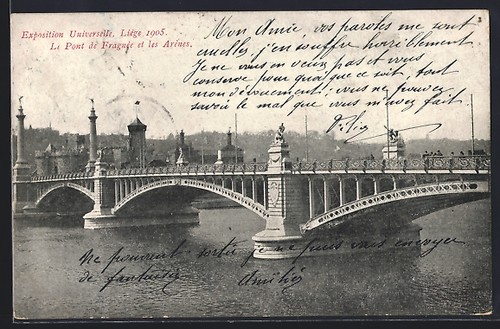 Exposition Universelle, Liége 1905.
Le Pont de Fragnée et les Arènes.
Mon Amie, vos paroles me sont
cruelles, j'en souffre horriblement
Je ne vous en veux pas et vous
conserve pour quoi que ce soit, tout
mon dévouement! vous ne pouvez
savoir le mal que vous m'avez fait
Ne pouvant sortir je vous envoyer
de fantaisies Amitiés